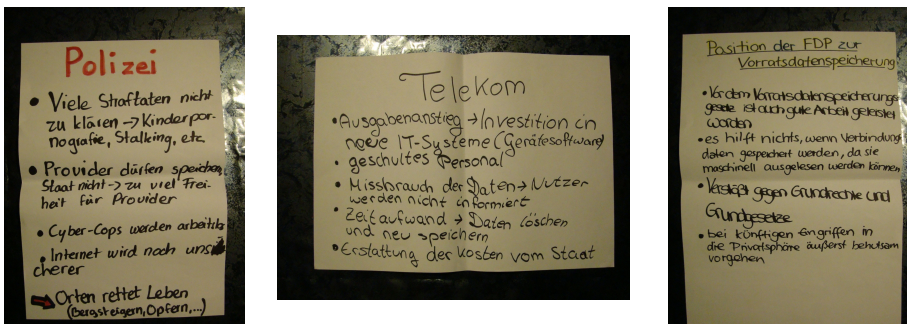 Polizei
• Viele Straftaten nicht
zu klären → Kinderpor-
nografie, Stalking, etc.
• Provider dürfen speichern,
Staat nicht → zu viel Frei-
heit für Provider
• Cyber-Cops werden arbeitslos
• Internet wird noch unsi
cherer
Orten rettet Leben
(Bergsteigern, Opfern, ...)
Telekom
• Ausgabenanstieg → Investition in
neue IT-Systeme (Gerätesoftware)
• geschultes Personal
• Missbrauch der Daten → Nutzer
werden nicht informiert
• Zeitaufwand → Daten löschen
und neu speichern
• Erstattung der Kosten vom Staat
Position der FDP zur
Vorratsdatenspeicherung
• Vor dem Vorratsdatenspeicherungs-
gesetz ist auch gute Arbeit geleistet
worden
• es hilft nichts, wenn Verbindungs
daten gespeichert werden, da sie
maschinell ausgelesen werden können
• Verstößt gegen Grundrechte und
Grundgesetze
• bei künftigen Eingriffen in
die Privatsphäre äußerst behutsam
vorgehen